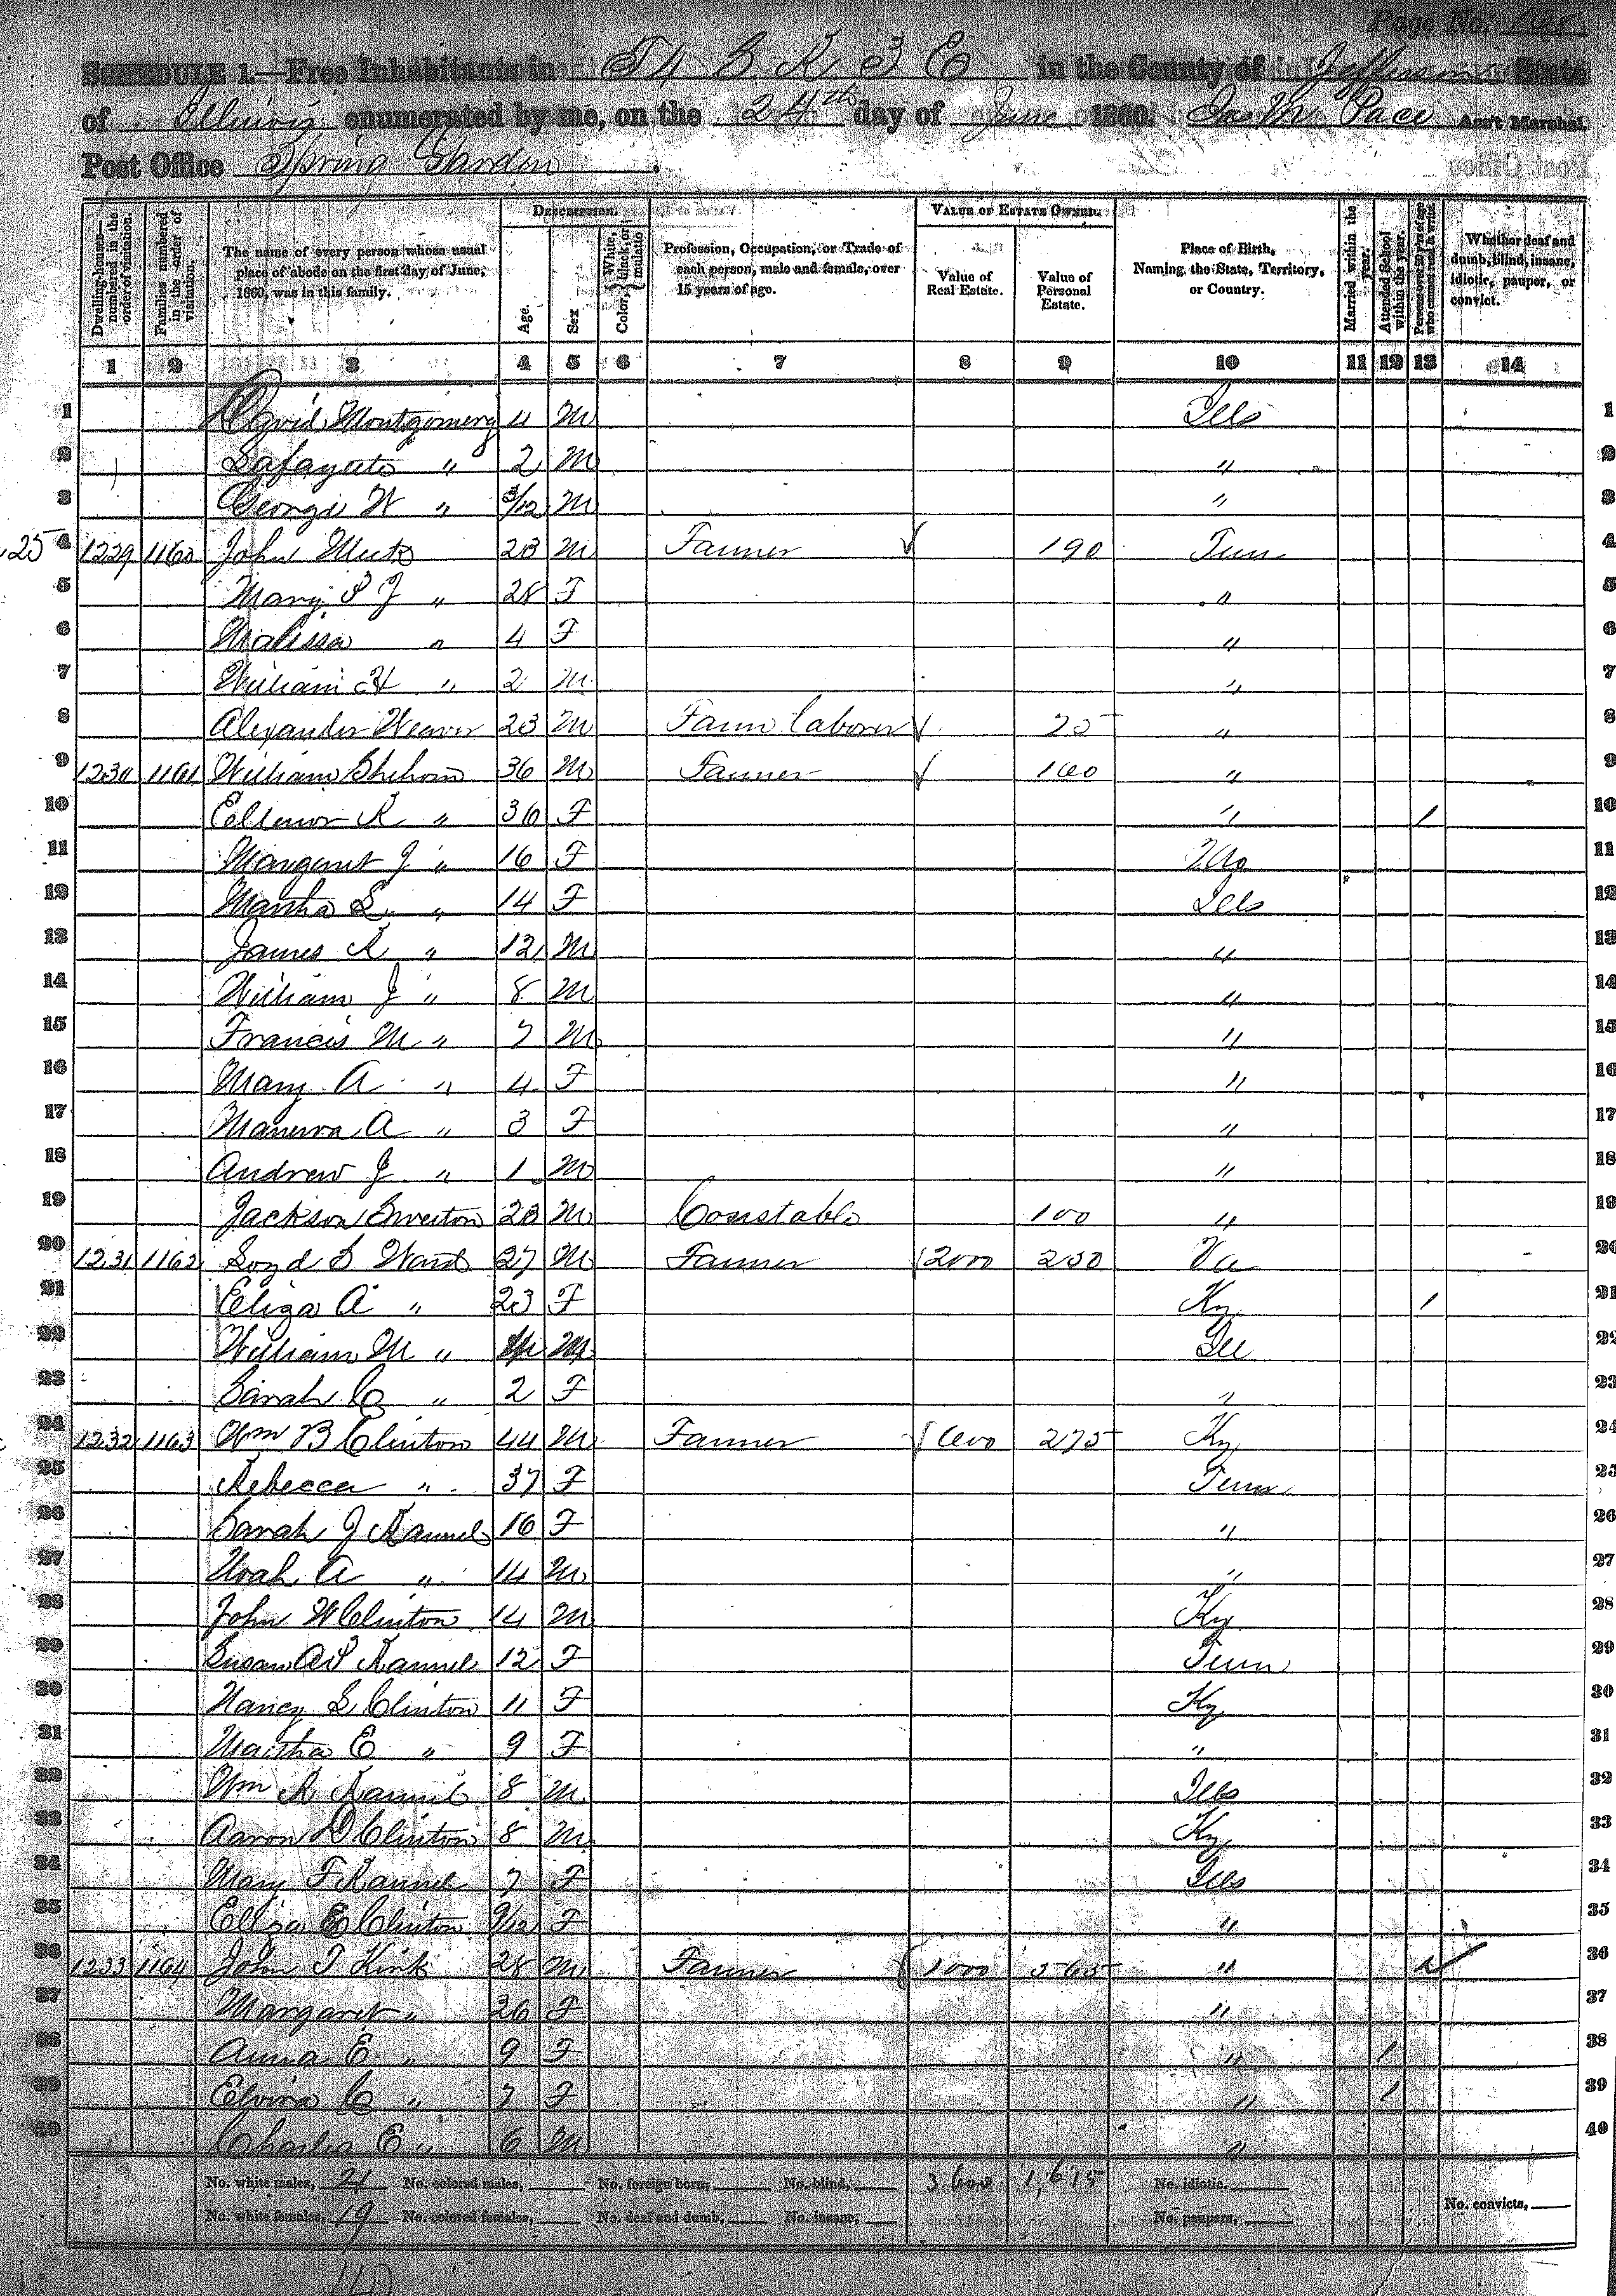 Page No. 148
SCHEDULE 1.—Free Inhabitants in T4 S R 3 E in the County of Jefferson State
of Illinois enumerated by me, on the 24th day of June 1860. Jas M Pace Ass't Marshal.
Post Office Spring Garden.
Dwelling-houses—numbered in the order of visitation.
Families numbered in the order of visitation.
The name of every person whose usual place of abode on the first day of June, 1860, was in this family.
DESCRIPTION.
Age.
Sex
Color, { White, black, or mulatto
Profession, Occupation, or Trade of each person, male and female, over 15 years of age.
VALUE OF ESTATE OWNED.
Value of Real Estate.
Value of Personal Estate.
Place of Birth, Naming the State, Territory, or Country.
Married within the year.
Attended School within the year.
Persons over 20 y'rs of age who cannot read & write.
Whether deaf and dumb, blind, insane, idiotic, pauper, or convict.
1 2 3 4 5 6 7 8 9 10 11 12 13 14
1 David Montgomery 4 M Ills 1
2 Lafayette " 2 M " 2
3 George W " 3/12 M " 3
25 4 1229 1160 John 23 M Farmer 190 Tenn 4
5 Mary J " 28 F " 5
6 Malissa " 4 F " 6
7 William H " 2 M " 7
8 Alexander Weaver 23 M Farm laborer 25 " 8
9 1230 1161 William Shehorn 36 M Farmer 100 " 9
10 Ellenor R " 36 F " 1 10
11 Margaret J " 16 F Mo 11
12 Martha L " 14 F Ills 12
13 James R " 12 M " 13
14 William J " 8 M " 14
15 Francis M " 7 M " 15
16 Mary A " 4 F " 16
17 Manerva A " 3 F " 17
18 Andrew J " 1 M " 18
19 Jackson 23 M Constable 100 " 19
20 1231 1162 Loyd S Ward 27 M Farmer 2000 250 Va 20
21 Eliza A " 23 F Ky 1 21
22 William M " 4 M Ill 22
23 Sarah C " 2 F " 23
24 1232 1163 Wm B Clinton 44 M Farmer 600 275 Ky 24
25 Rebecca " 37 F Tenn 25
26 Sarah J Rannels 16 F " 26
27 Noah A " 14 M " 27
28 John W Clinton 14 M Ky 28
29 Susan A Rannel 12 F Tenn 29
30 Nancy L Clinton 11 F Ky 30
31 Martha E " 9 F " 31
32 Wm R Rannel 8 M Ills 32
33 Aaron D Clinton 8 M Ky 33
34 Mary F Rannel 7 F Ills 34
35 Eliza E Clinton 9/12 F " 35
36 1233 1164 John T Kirk 28 M Farmer 1000 565 " 36
37 Margaret " 26 F " 37
38 Anna E " 9 F " 1 38
39 Elvira C " 7 F " 1 39
40 Charles E " 6 M " 40
No. white males, 21 No. colored males, No. foreign born, No. blind, 3600 1,615 No. idiotic,
No. white females, 19 No. colored females, No. deaf and dumb, No. insane, No. paupers, No. convicts,